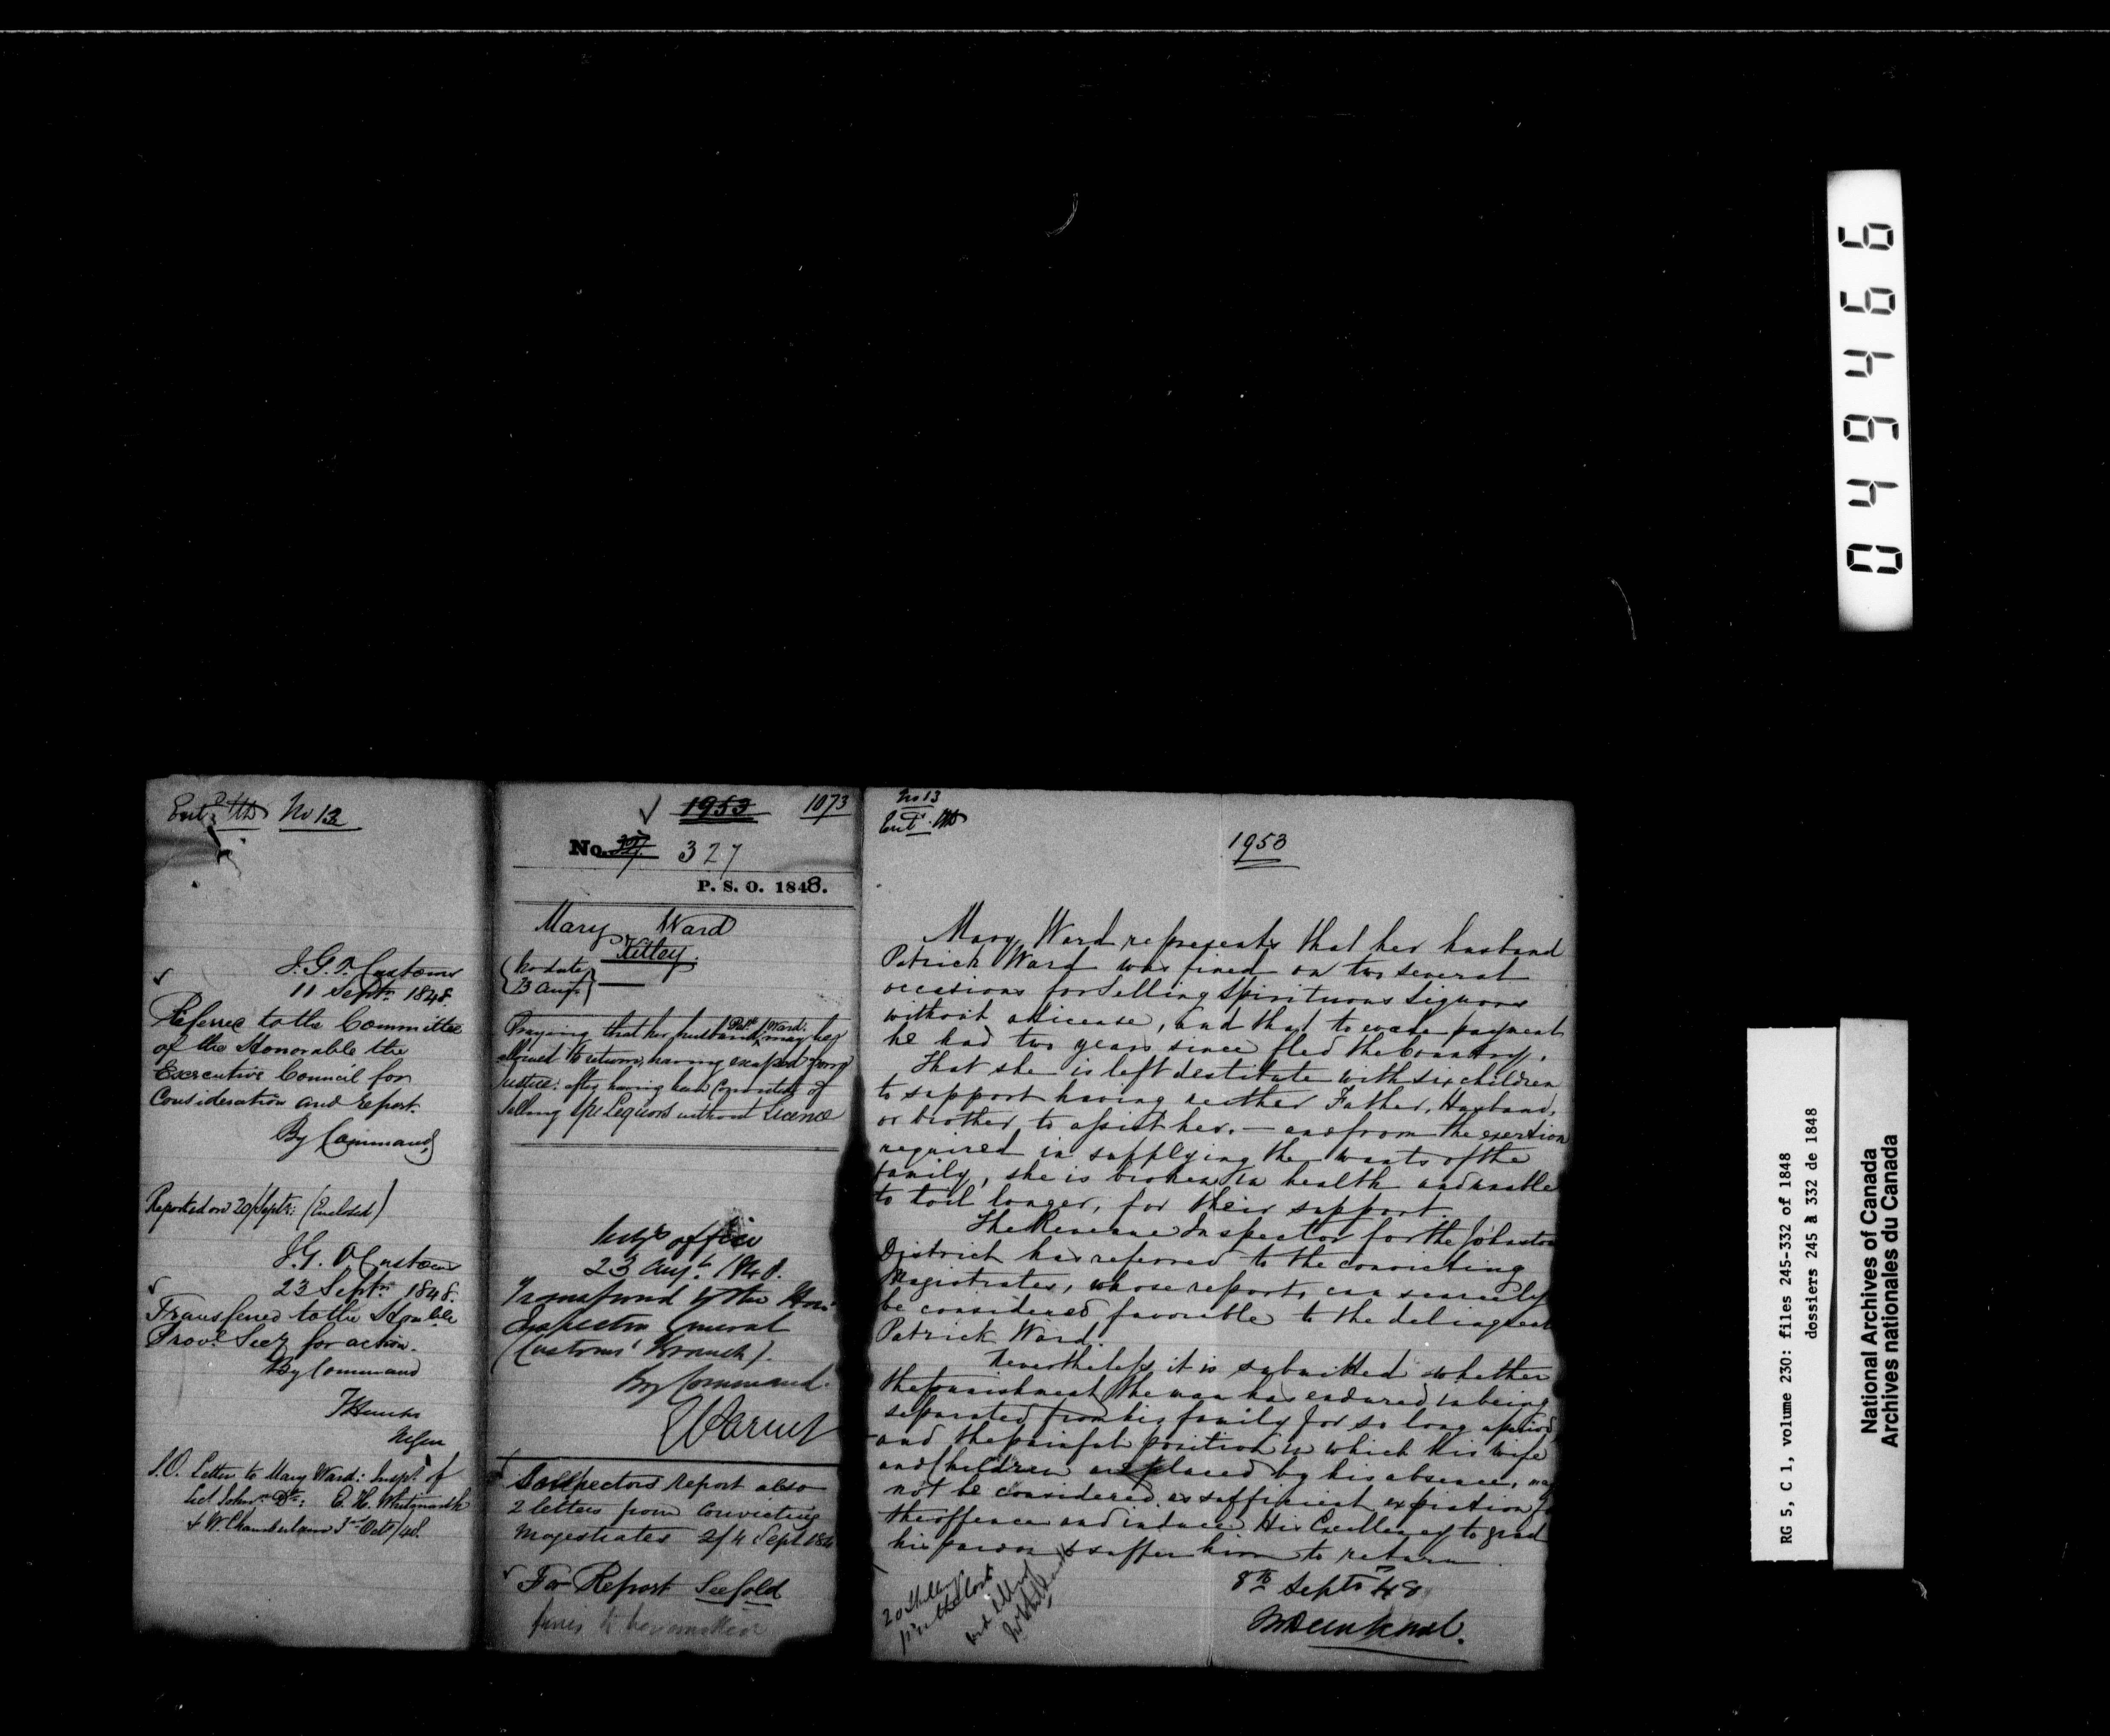 Entd No 13
I. G. O. Customs
11 Septr 1848.
Referred to the Committee
of the Honorable the
Executive Council for
Consideration and report.
By Command
Reported on 20 Septr: (Enclosed)
I. G. O Customs
23 Septr 1848.
Transferred to the Honble
Provl Secy for action.
By Command
F Hincks
InGen
Letter to Mary Ward: Inspr of
Dt: E. H. Whitmarsh
& W. Chamberlain 3rd Octr/48.
1953 1073
No. 327 327
P. S. O. 1848.
Mary Ward
Kitley.
(No date)
(23 Augt)
Praying that her husband Patk Ward. may be
allowed to return, having escaped from
justice: after having been Convicted of
Selling Liquors without Licence
Secy's office
23 Augt. 1848.
Transferred to the Hon:
Inspector General
(Customs' Branch).
By Command.
Inspectors report also
2 letters from Convicting
Magistrates 2/4 Sept 184
For Report See fold
fines to be remitted
No 13
Entd.
1953
Mary Ward represents that her husband
Patrick Ward was fined on two several
occasions for Selling Spirituous Liquors
without a license, and that to evade payment
he had two years since fled the Country.
That she is left destitute with six children
to support having neither Father, Husband,
or brother, to assist her. — and from the exertion
required in supplying the wants of the
family, she is broken in health and unable
to toil longer, for their support.
The Revenue Inspector for the Johnstown
District has referred to the convicting
Magistrates, whose reports can scarcely
be considered favorable to the delinquent
Patrick Ward.
Nevertheless it is submitted whether
the punishment the man has endured in being
separated from his family for so long a period,
and the painful position in which his wife
and Children are placed by his absence, may
not be considered as sufficient expiation for
the offence and induce His Excellency to grant
his pardon & suffer him to return.
8th Septr 48
20 Shillings
RG 5, C 1, volume 230: files 245-332 of 1848
dossiers 245 à 332 de 1848
National Archives of Canada
Archives nationales du Canada
049466